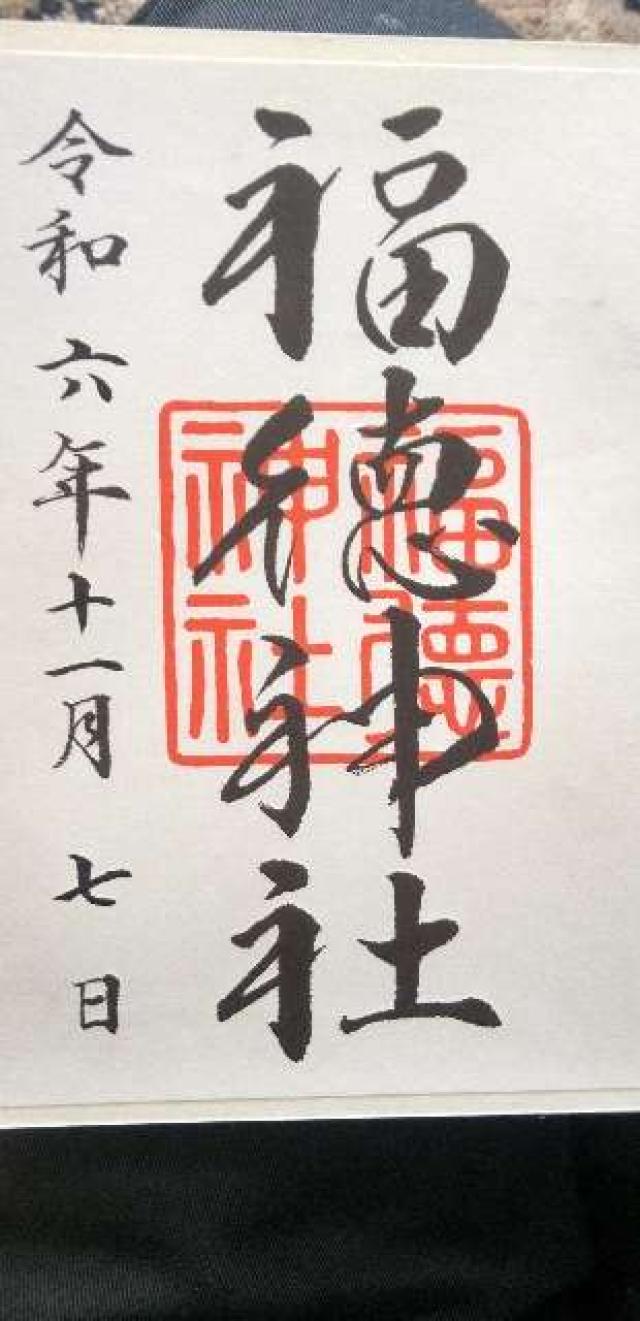 福徳神社
福徳
神社
令和六年十一月七日